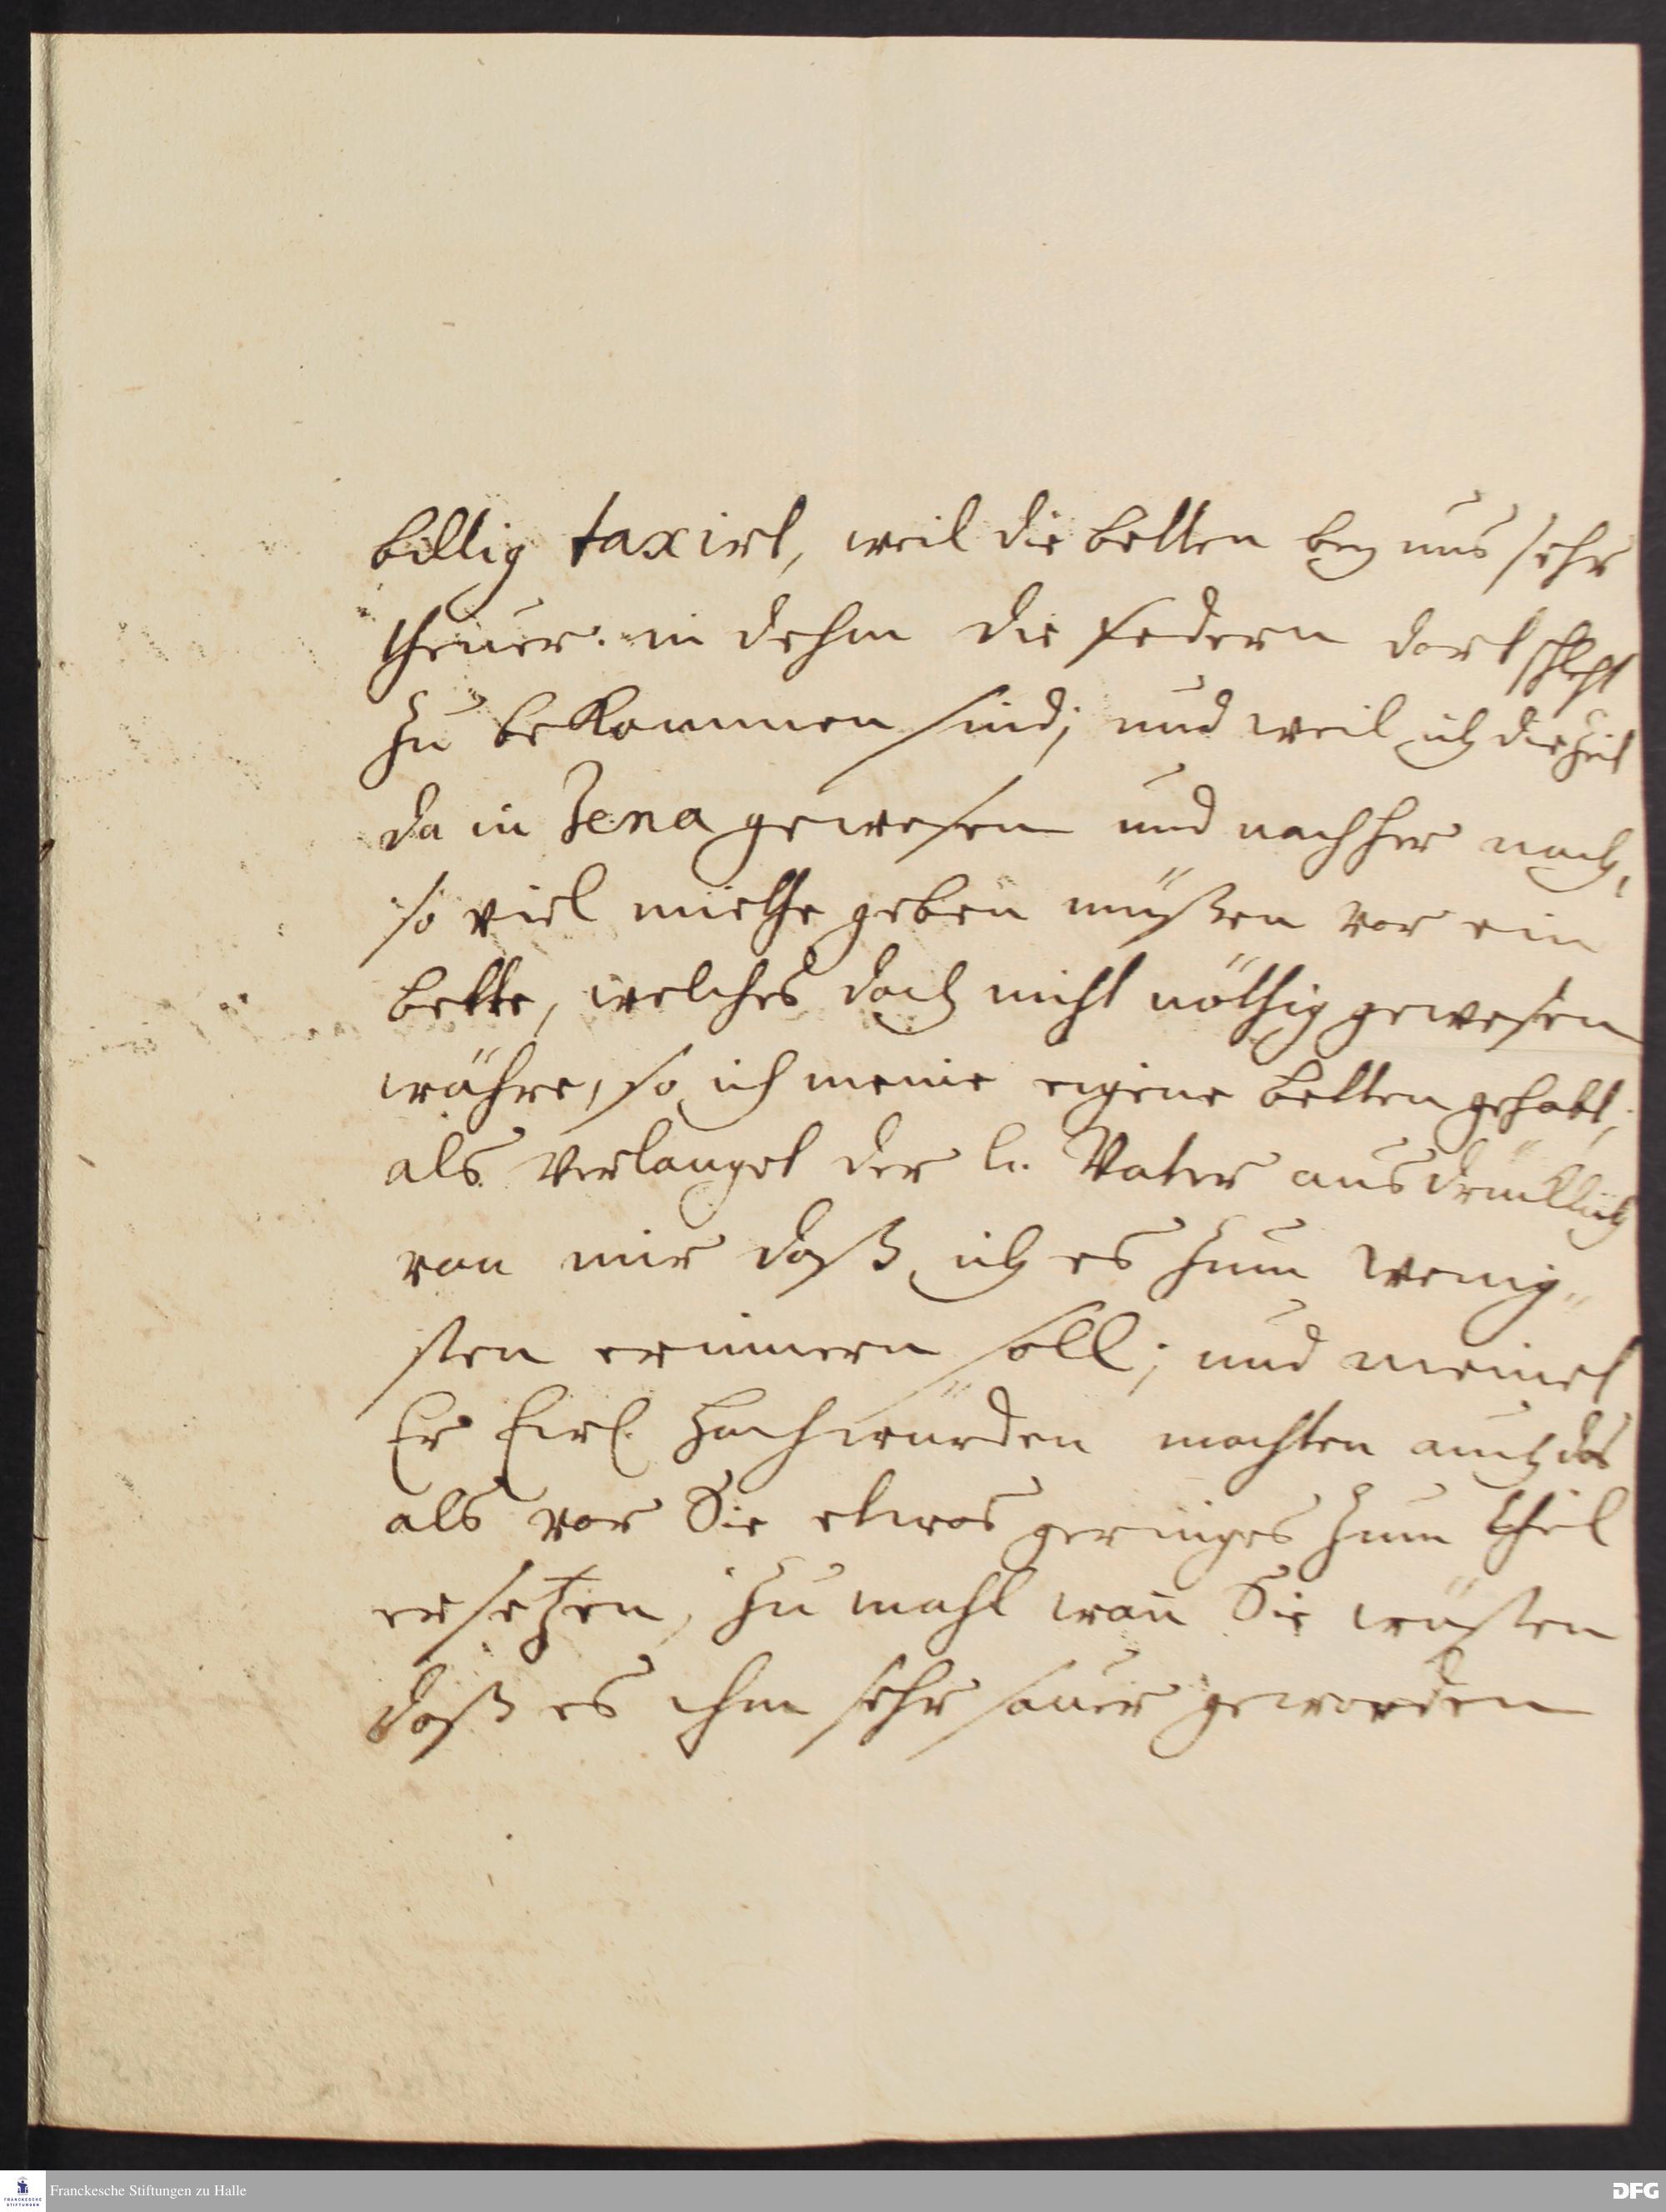 billig taxirt, weil die betten bey uns sehr
theuer. in dehm die federn dort schlecht
zu bekommen sind; und weil ich die Zeit
da in Jena gewesen und nachher noch,
so viel miethe geben müßen vor ein
bette, welches doch nicht nöthig gewesen
währe, so ich meine eigene betten gehabt;
als verlanget der l. Vater ausdrücklich
von mir daß ich es zum wenig„
sten erinnern soll; und meinet
Er Hochwürden mochten auch das
als vor Sie etwas geringes zum theil
ersetzen, zu mahl wan̄ Sie wüsten
daß es ihm sehr sauer geworden
Franckesche Stiftungen zu Halle
FRANCKESCHE
STIFTUNGEN
DFG